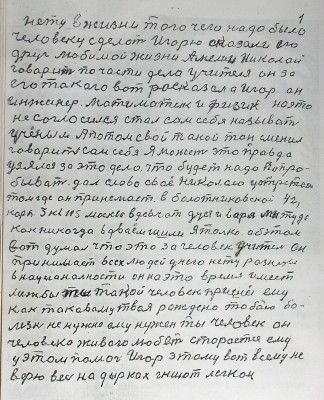 1
нету в жизни того чего надо было
человеку сделат Игорю сказали его
друг любимой жизни Николай
говорит по части дела учителя он за
его такаго вот росказал а Игор. он
инженер. мотиматик и физик на это
не согласился стал сам себя называть
учёным А потом свой такой тон сменил
говорит сам себя Я может это правда
узялся за это дело. что будет надо Попро-
бывать. дал слово своё Николаю
там где он принемает. в болотниковской 42,
корп 3 кв
как никогда в двоём я толко об этом
вот думал что это за человек учител он
принимает всех людей у него нету разницы
в националности он на это время имеет
такой человек ему
как твая рождено тобою бо-
лезн не нужно ему нужен ты человек он
человека живого любет старается ему
у этом помоч Игор этому вот всему не
верю вес на дырках гниют легкои